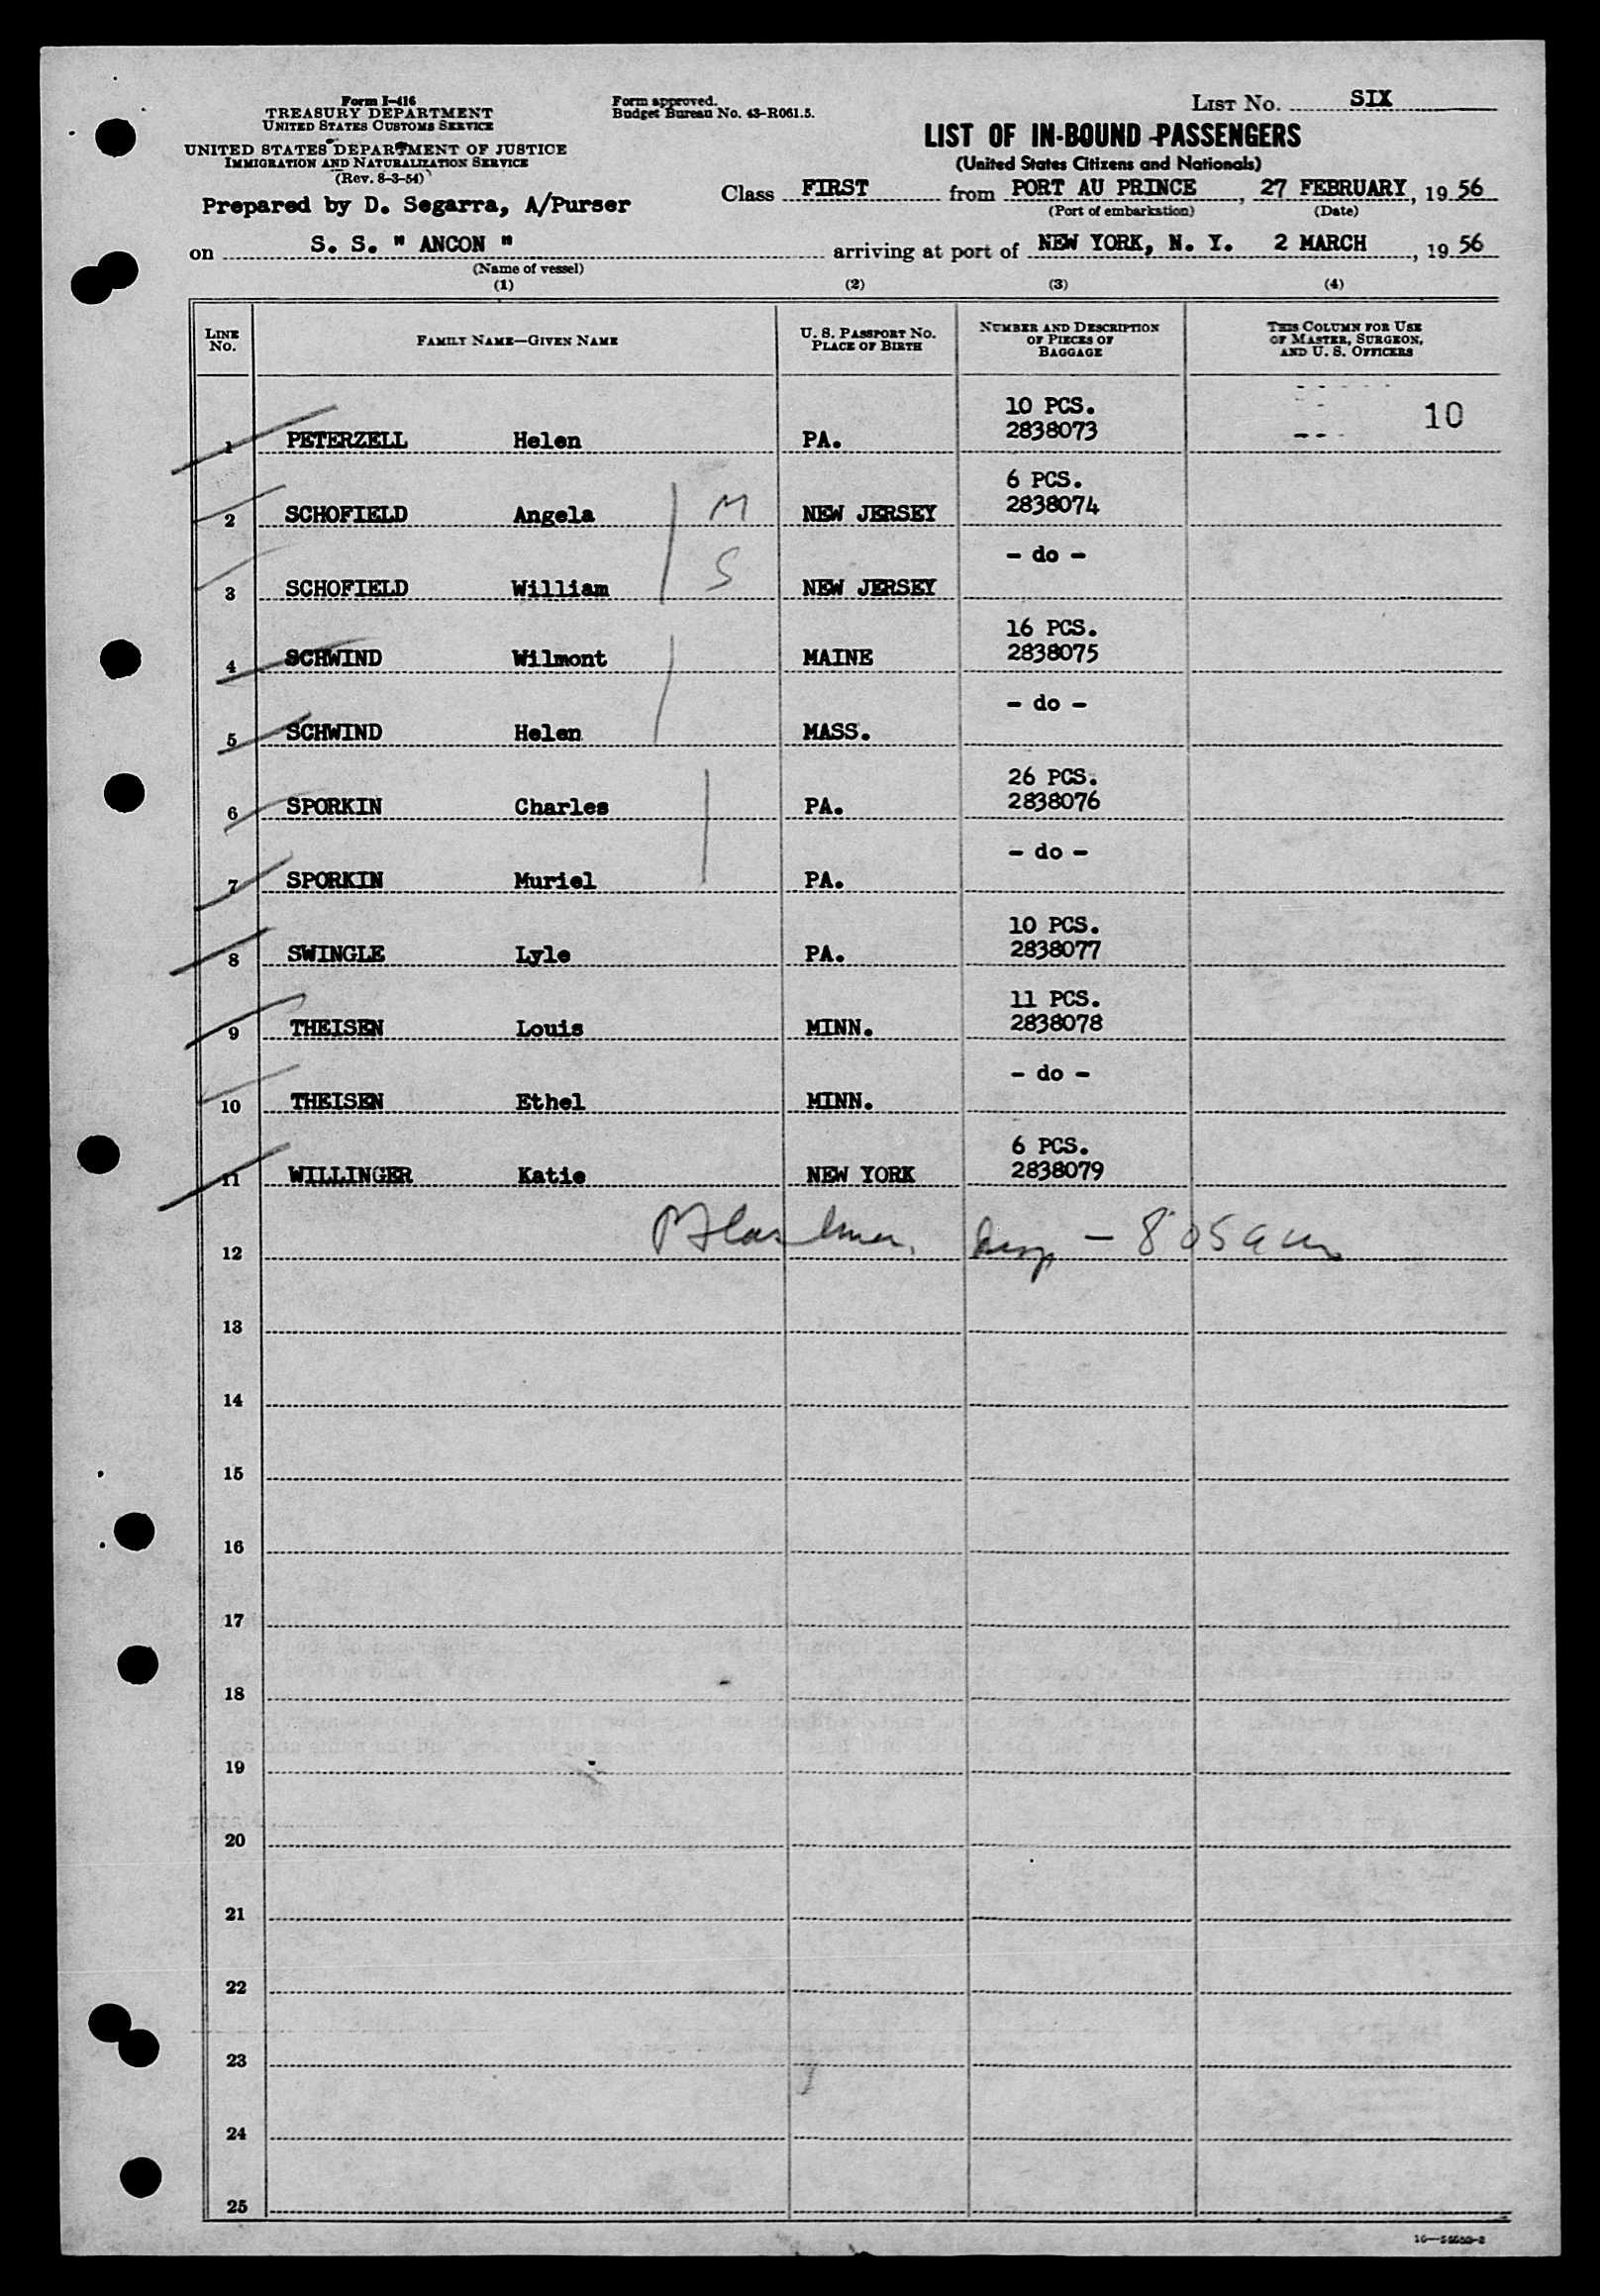 Form I-416
TREASURY DEPARTMENT
UNITED STATES CUSTOMS SERVICE
UNITED STATES DEPARTMENT OF JUSTICE
IMMIGRATION AND NATURALIZATION SERVICE
(Rev. 8-3-54)
Form approved.
Budget Bureau No. 43-R061.5.
LIST No. SIX
LIST OF IN-BOUND PASSENGERS
(United States Citizens and Nationals)
Prepared by D. Segarra, A/Purser
Class FIRST from PORT AU PRINCE, 27 FEBRUARY, 19 56
(Port of embarkation) (Date)
on S. S. " ANCON " arriving at port of NEW YORK, N. Y. 2 MARCH, 19 56
(Name of vessel)
(1) (2) (3) (4)
LINE No. FAMILY NAME—GIVEN NAME U. S. PASSPORT No. PLACE OF BIRTH NUMBER AND DESCRIPTION OF PIECES OF BAGGAGE THIS COLUMN FOR USE OF MASTER, SURGEON, AND U. S. OFFICERS
10 PCS. 10
1 PETERZELL Helen PA. 2838073
6 PCS.
2 SCHOFIELD Angela M NEW JERSEY 2838074
- do -
3 SCHOFIELD William S NEW JERSEY
16 PCS.
4 SCHWIND Wilmont MAINE 2838075
- do -
5 SCHWIND Helen MASS.
26 PCS.
6 SPORKIN Charles PA. 2838076
- do -
7 SPORKIN Muriel PA.
10 PCS.
8 SWINGLE Lyle PA. 2838077
11 PCS.
9 THEISEN Louis MINN. 2838078
- do -
10 THEISEN Ethel MINN.
6 PCS.
11 WILLINGER Katie NEW YORK 2838079
12 - 805 am
13
14
15
16
17
18
19
20
21
22
23
24
25